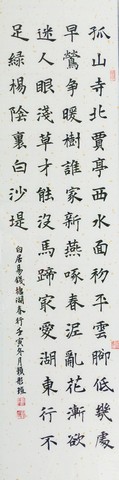 孤山寺北賈亭西水面初平雲腳低幾處
早鶯爭暖樹誰家新燕啄春泥亂花漸欲
迷人眼淺草才能沒馬蹄最愛湖東行不
足綠楊陰裏白沙堤
白居易錢塘湖春行壬寅冬月